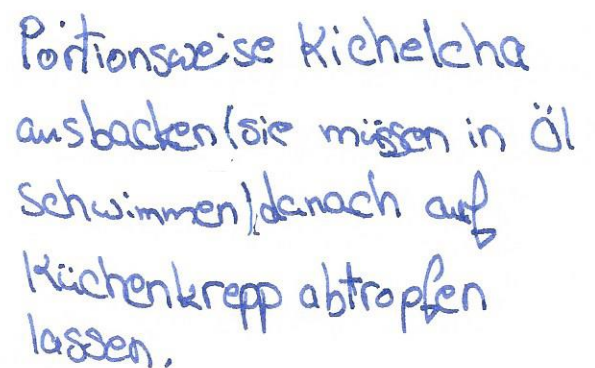 Portionsweise Kichelcha
ausbacken (sie müssen in Öl
schwimmen), danach auf
Küchenkrepp abtropfen
lassen.